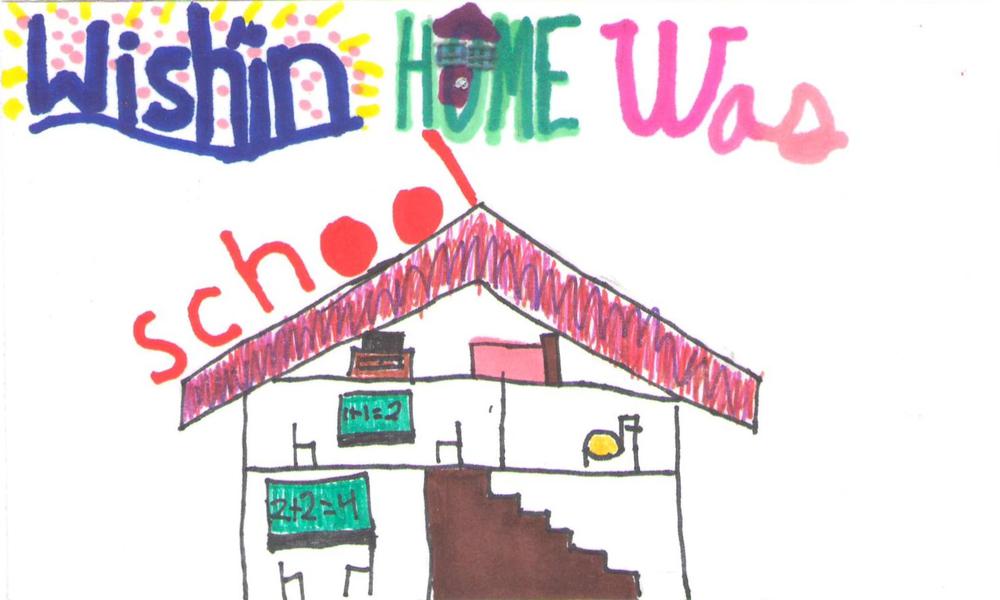 Wish'in HOME Was
school
1+1=2
2+2=4